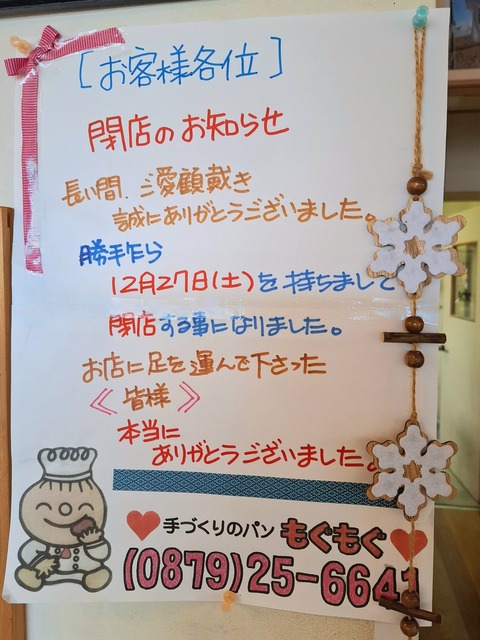 [お客様各位]
閉店のお知らせ
長い間、ご愛顧戴き
誠にありがとうございました。
勝手乍ら
12月27日(土)を持ちまして
閉店する事になりました。
お店に足を運んで下さった
《皆様》
本当に
ありがとうございました。
手づくりのパン もぐもぐ
(0879)25-6641